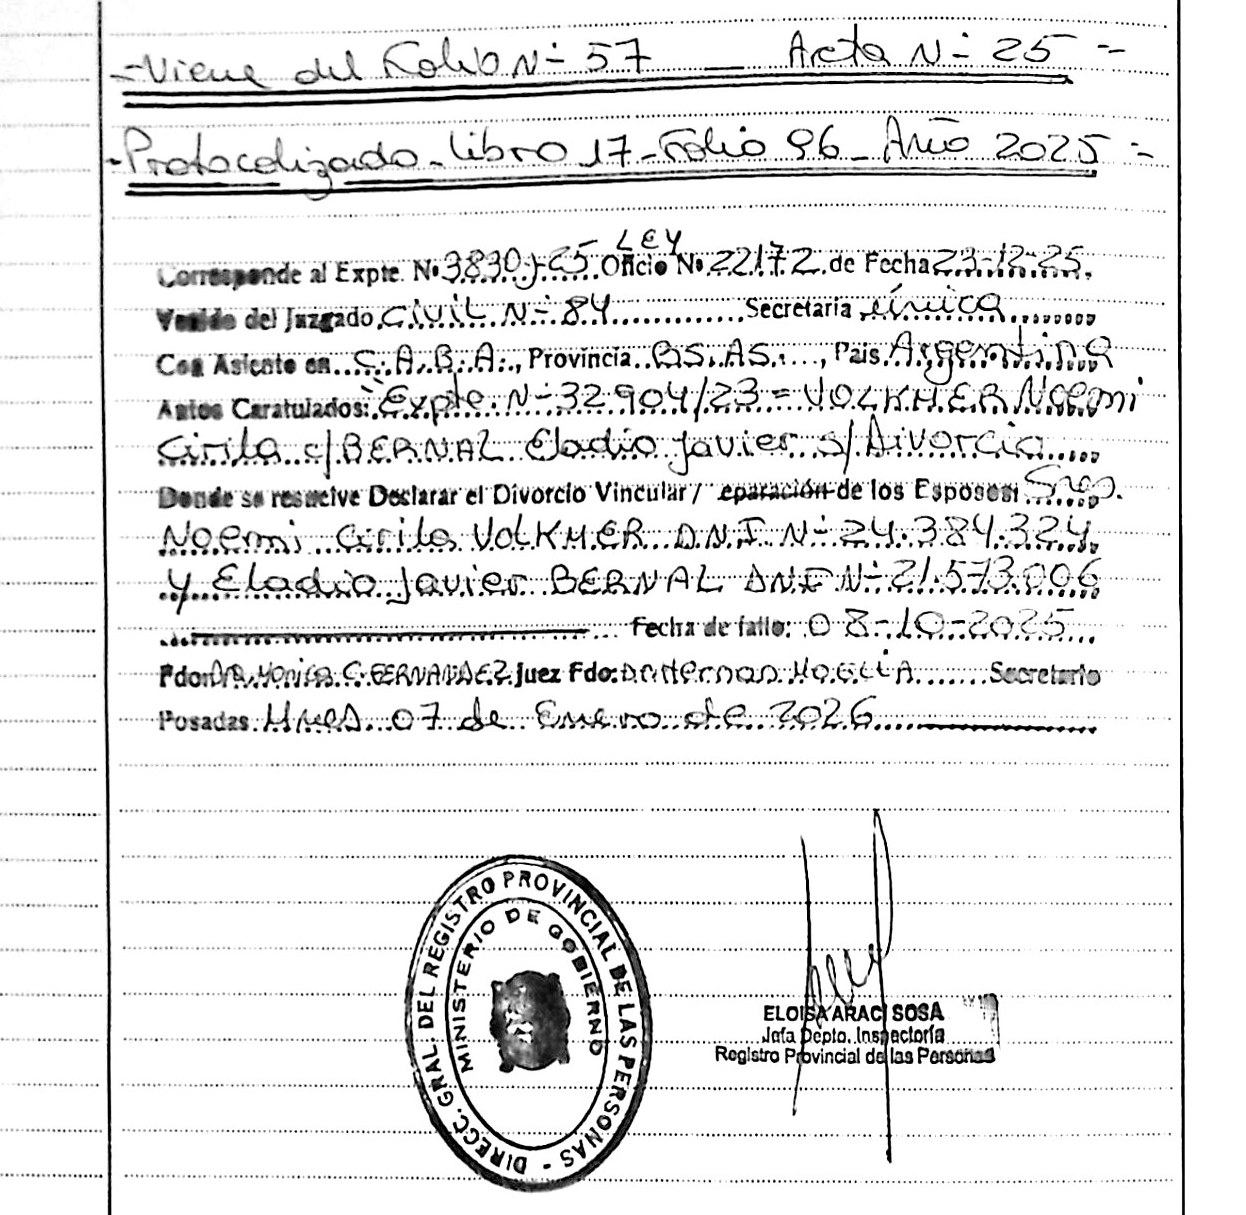 - Viene del Folio N° 57 — Acta N° 25 -
- Protocolizado - Libro 17 - Folio 96 - Año 2025 -
LEY
Corresponde al Expte. N° 3830-J-25 Oficio N° 22172 de Fecha 23-12-25.
Venido del Juzgado Civil N° 84 Secretaria única
Con Asiento en C.A.B.A., Provincia BS.AS., Pais Argentina
Autos Caratulados: "Expte. N° 32904/23 = VOLKHER Noemi
Cirila c/ BERNAL Eladio Javier s/ Divorcio
Donde se resuelve Declarar el Divorcio Vincular/ eparación de los Esposos: Sres.
Noemi Cirila VOLKHER D.N.I. N° 24.384.324
y Eladio Javier BERNAL DNI N° 21.573.006
Fecha de fallo: 08-10-2025
Fdo: DRA. Monica C. FERNANDEZ Juez Fdo: Dr. Hernan Secretario
Posadas Mnes. 07 de Enero de 2026
DIRECC. GRAL. DEL REGISTRO PROVINCIAL DE LAS PERSONAS -
MINISTERIO DE GOBIERNO
ELOISA ARACI SOSA
Jefa Depto. Inspectoría
Registro Provincial de las Personas